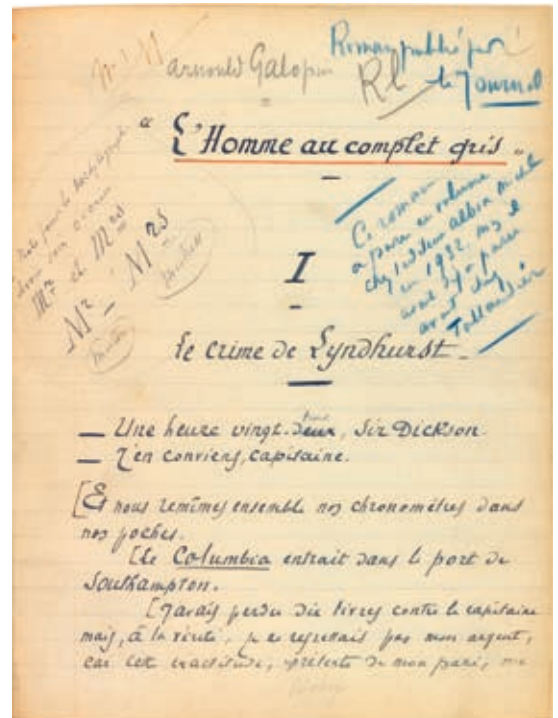 Arnould Galopin
Roman publié par
le Journal
Rl
" L'Homme au complet gris "
Ce roman
a paru en volume
chez l'éditeur Albin Michel
en 1932, mais il
avait déjà paru
avant chez
Tallandier
Mr et Mrs
Mr — Mrs
I
Le crime de Lyndhurst
— Une heure vingt-deux, Sir Dickson.
— J'en conviens, capitaine.
[Et nous remîmes ensemble nos chronomètres dans
nos poches.
[Le Columbia entrait dans le port de
Southampton.
[J'avais perdu dix livres contre le capitaine
mais, à la vérité, je ne regrettais pas mon argent,
car cet de mon pari,